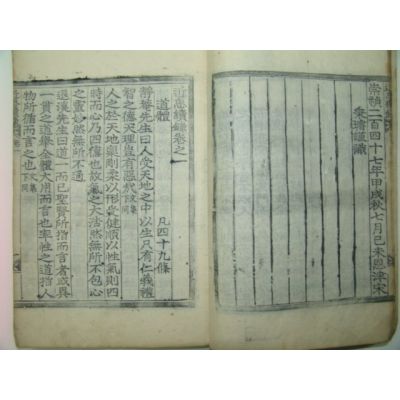 崇禎二百四十七年甲戌秋七月己未恩津宋
秉璿謹識
近思續錄卷之一
道體 凡四十九條
靜庵先生曰人受天地之中以生只有仁義禮
智之德天理豈有惡哉文集下同
人之於天地稟剛柔以形受健順以性氣則四
時而心乃四德也故氣之大浩然無所不包心
之靈妙然無所不通
退溪先生曰道一而已聖賢所指而言者或異
一貫之道擧全體大用而言也率性之道指人
物所循而言之也文集下同